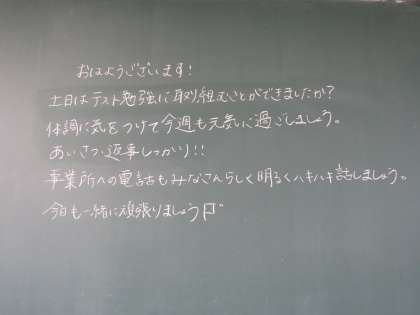 おはようございます!
土日はテスト勉強に取り組むことができましたか?
体調に気をつけて今週も元気に過ごしましょう。
あいさつ・返事しっかり!!
事業所への電話もみなさんらしく明るくハキハキ話しましょう。
今日も一緒に頑張りましょう